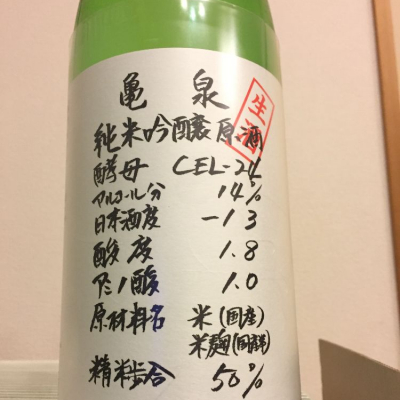 亀泉
生酒
純米吟醸原酒
酵母 CEL-24
アルコール分 14%
日本酒度 -13
酸度 1.8
アミノ酸 1.0
原材料名 米(国産)
米麹(国産米)
精米歩合 50%